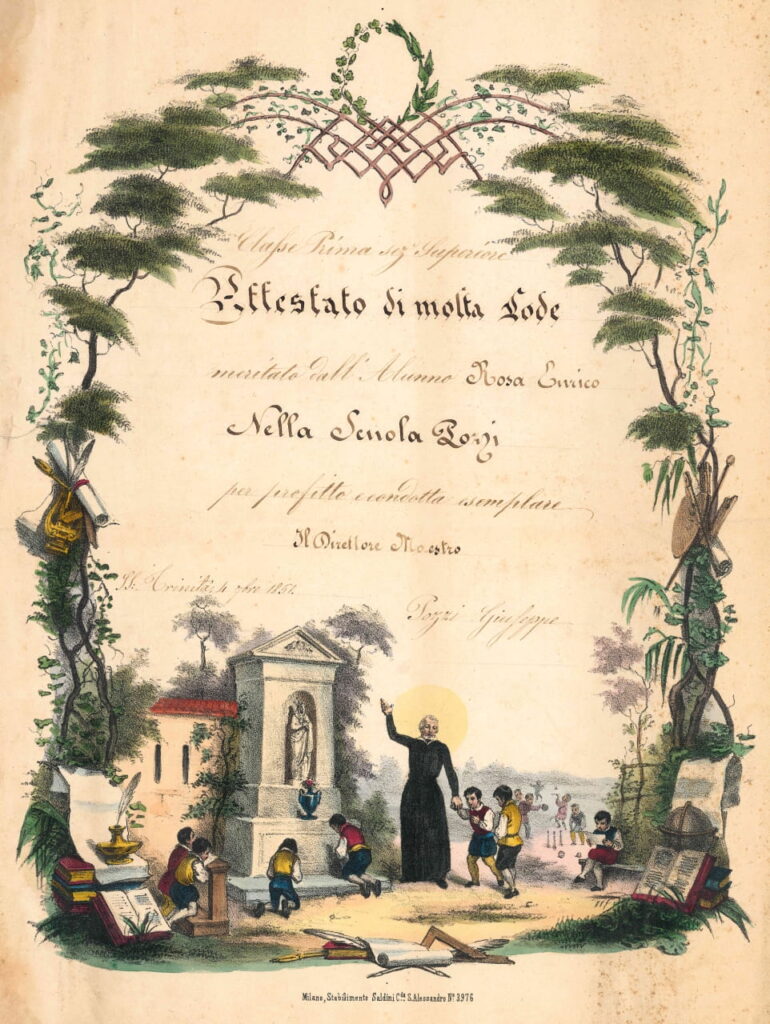 Classe Prima sez. Superiore
Attestato di molta Lode
meritato dall' Alunno Rosa Enrico
Nella Scuola Pozzi
per profitto e condotta esemplare
Il Direttore Maestro
SS. Trinità 4 9bre
Pozzi Giuseppe
Milano, Stabilimento Saldini Cda S. Alessandro No. 3976